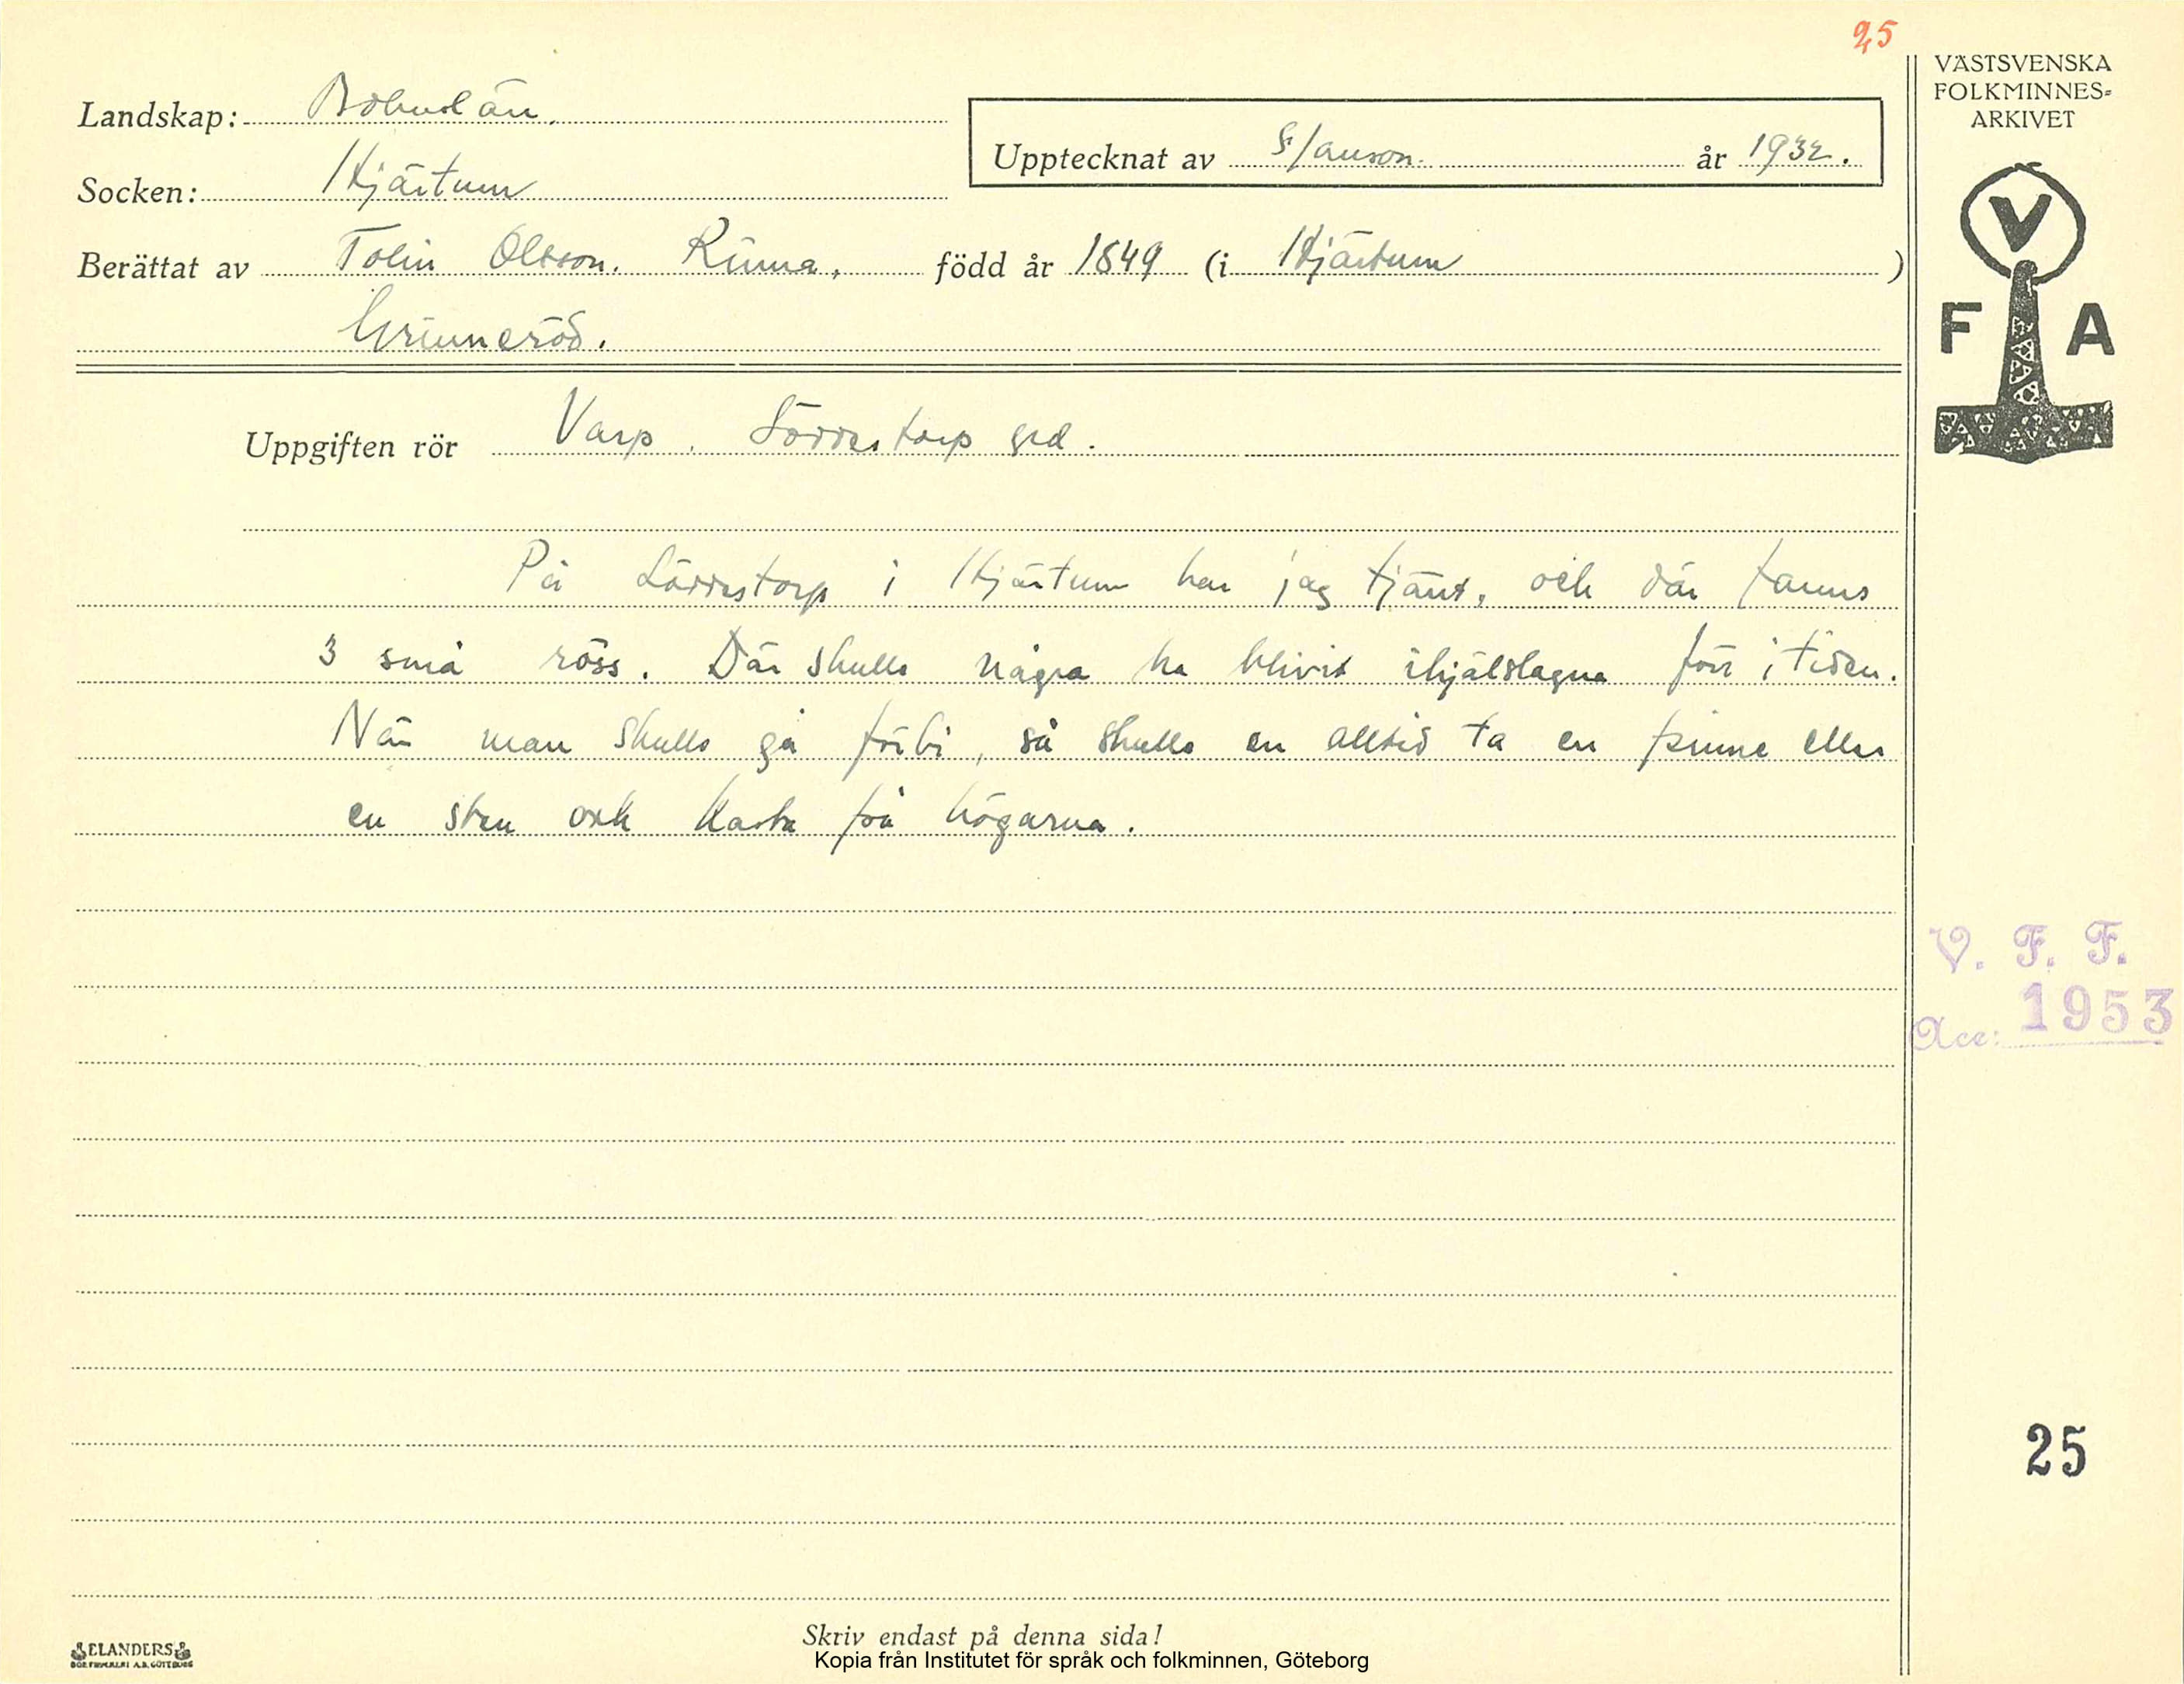 25
VÄSTSVENSKA
FOLKMINNES-
ARKIVET
Landskap: Bohuslän.
Upptecknat av år 1932.
Socken: Hjärtum
Berättat av Tolin Olsson. Rinna, född år 1849 (i Hjärtum)
Grinneröd.
V
F A
Uppgiften rör Varp. Lörrestorp grd.
På Lörrestorp i Hjärtum har jag tjänt, och där fanns
3 små röss. Där skulle några ha blivit ihjälslagna förr i tiden.
När man skulle gå förbi, så skulle en alltid ta en pinne eller
en sten och kasta på högarna.
V. F. F.
Acc: 1953
25
Skriv endast på denna sida!
ELANDERS
BOKTRYCKERI A.B. GÖTEBORG
Kopia från Institutet för språk och folkminnen, Göteborg